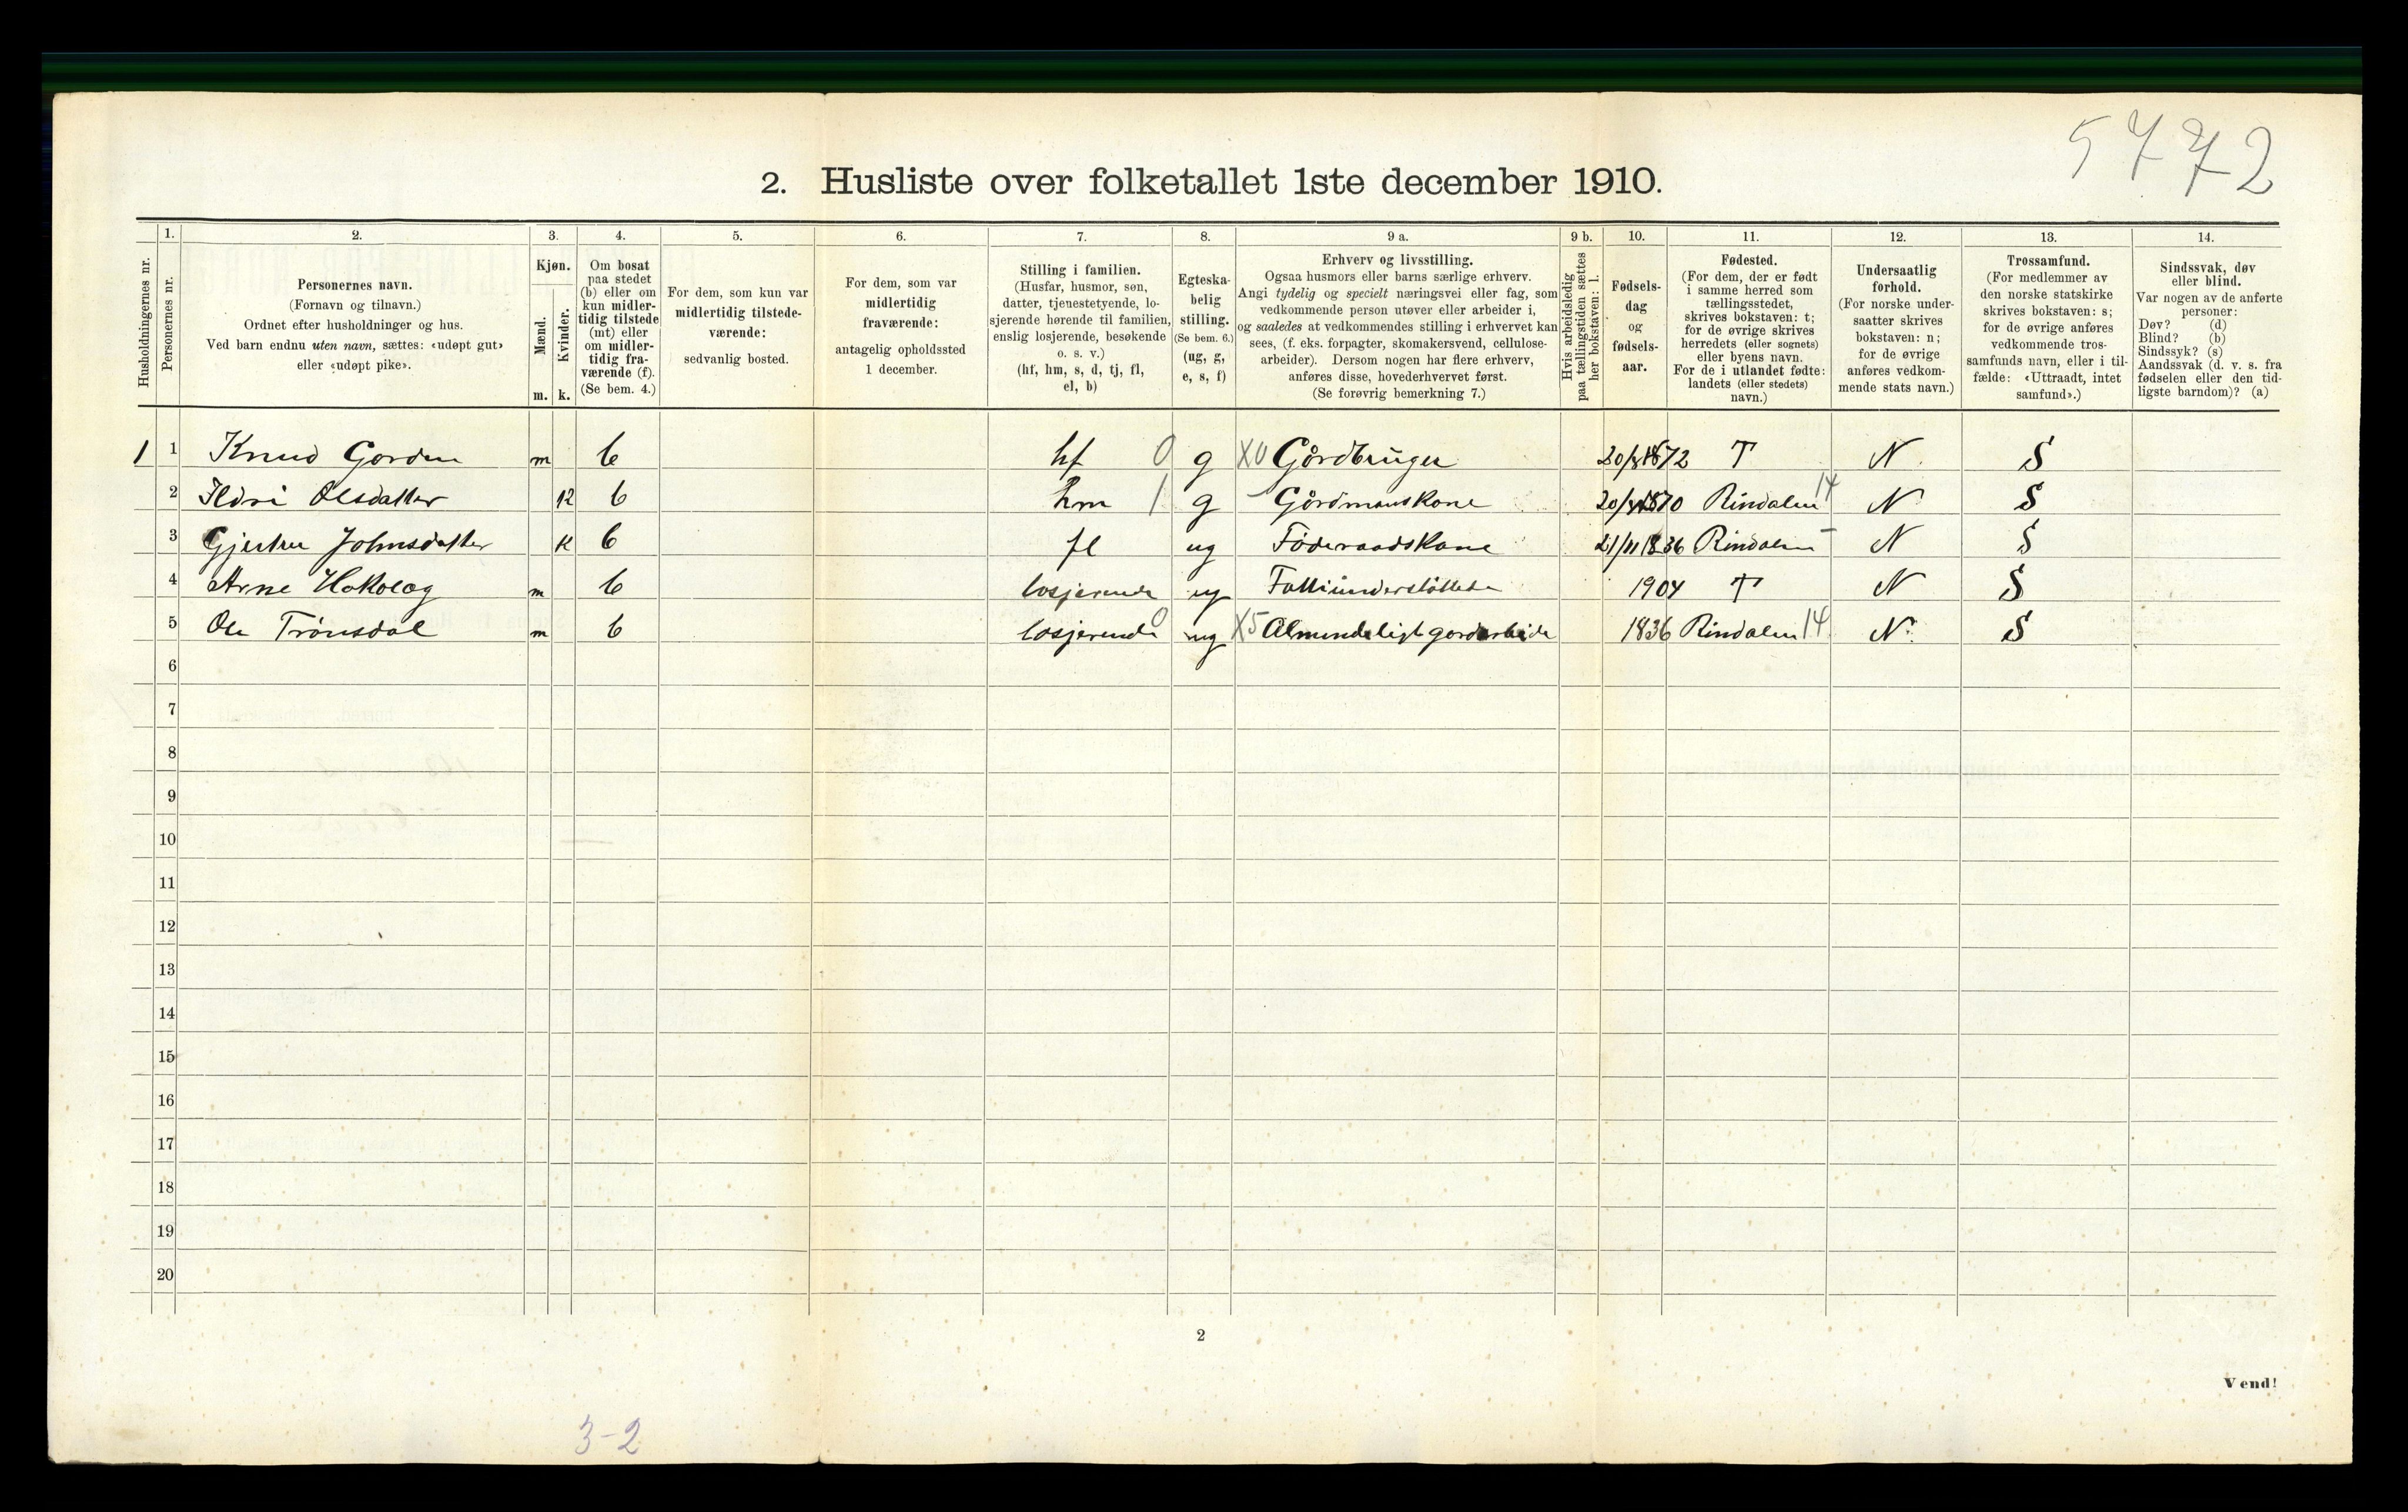 5772
2. Husliste over folketallet 1ste december 1910.
Husholdningernes nr.
1.
Personernes nr.
2.
Personernes navn.
(Fornavn og tilnavn.)
Ordnet efter husholdninger og hus.
Ved barn endnu uten navn, sættes: «udøpt gut»
eller «udøpt pike».
3.
Kjøn.
Mænd.
Kvinder.
m. k.
4.
Om bosat
paa stedet
(b) eller om
kun midler-
tidig tilstede
(mt) eller
om midler-
tidig fra-
værende (f).
(Se bem. 4.)
5.
For dem, som kun var
midlertidig tilstede-
værende:
sedvanlig bosted.
6.
For dem, som var
midlertidig
fraværende:
antagelig opholdssted
1 december.
7.
Stilling i familien.
(Husfar, husmor, søn,
datter, tjenestetyende, lo-
sjerende hørende til familien,
enslig losjerende, besøkende
o. s. v.)
(hf, hm, s, d, tj, fl,
el, b)
8.
Egteska-
belig
stilling.
(Se bem. 6.)
(ug, g,
e, s, f)
9 a.
Erhverv og livsstilling.
Ogsaa husmors eller barns særlige erhverv.
Angi tydelig og specielt næringsvei eller fag, som
vedkommende person utøver eller arbeider i,
og saaledes at vedkommendes stilling i erhvervet kan
sees, (f. eks. forpagter, skomakersvend, cellulose-
arbeider). Dersom nogen har flere erhverv,
anføres disse, hovederhvervet først.
(Se forøvrig bemerkning 7.)
9 b.
Hvis arbeidsledig
paa tællingstiden sættes
her bokstaven: l.
10.
Fødsels-
dag
og
fødsels-
aar.
11.
Fødested.
(For dem, der er født
i samme herred som
tællingsstedet,
skrives bokstaven: t;
for de øvrige skrives
herredets (eller sognets)
eller byens navn.
For de i utlandet fødte:
landets (eller stedets)
navn.)
12.
Undersaatlig
forhold.
(For norske under-
saatter skrives
bokstaven: n;
for de øvrige
anføres vedkom-
mende stats navn.)
13.
Trossamfund.
(For medlemmer av
den norske statskirke
skrives bokstaven: s;
for de øvrige anføres
vedkommende tros-
samfunds navn, eller i til-
fælde: «Uttraadt, intet
samfund».)
14.
Sindssvak, døv
eller blind.
Var nogen av de anførte
personer:
Døv? (d)
Blind? (b)
Sindssyk? (s)
Aandssvak (d. v. s. fra
fødselen eller den tid-
ligste barndom)? (a)
1 1 Knud Gorden m b hf 0 g X0 Gårdbruger 1872 T N S
2 Ildri Olsdatter k b hm 1 g Gårdmanskone 1870 Rindalen 14 N S
3 Johnsdatter k b fl ug Föderaadskone 21/11 1836 Rindalen N S
4 Arne m b losjerende ug 1904 T N S
5 Ole Trönsdal m b losjerende 0 ug X5 Almindeligt gordarbeide 1836 Rindalen 14 N S
6
7
8
9
10
11
12
13
14
15
16
17
18
19
20
2
Vend!
3-2